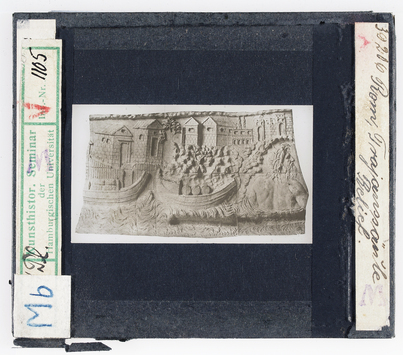 Kunsthistor. Seminar
der
Hamburgischen Universität
Inv.-Nr. 1105
V
Mb
Rom, Trajanssäule
Relief.
M